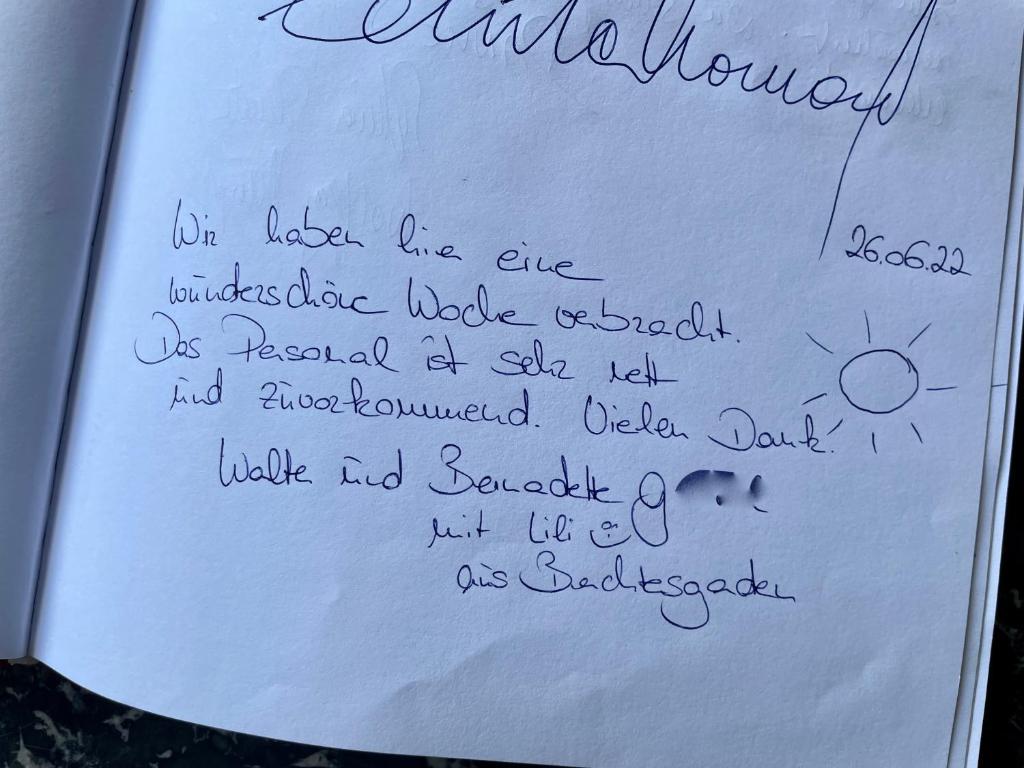 26.06.22
Wir haben hier eine
wunderschöne Woche verbracht.
Das Personal ist sehr nett
und zuvorkommend. Vielen Dank!
Walter und Bernadette
mit Lili
aus Berchtesgaden